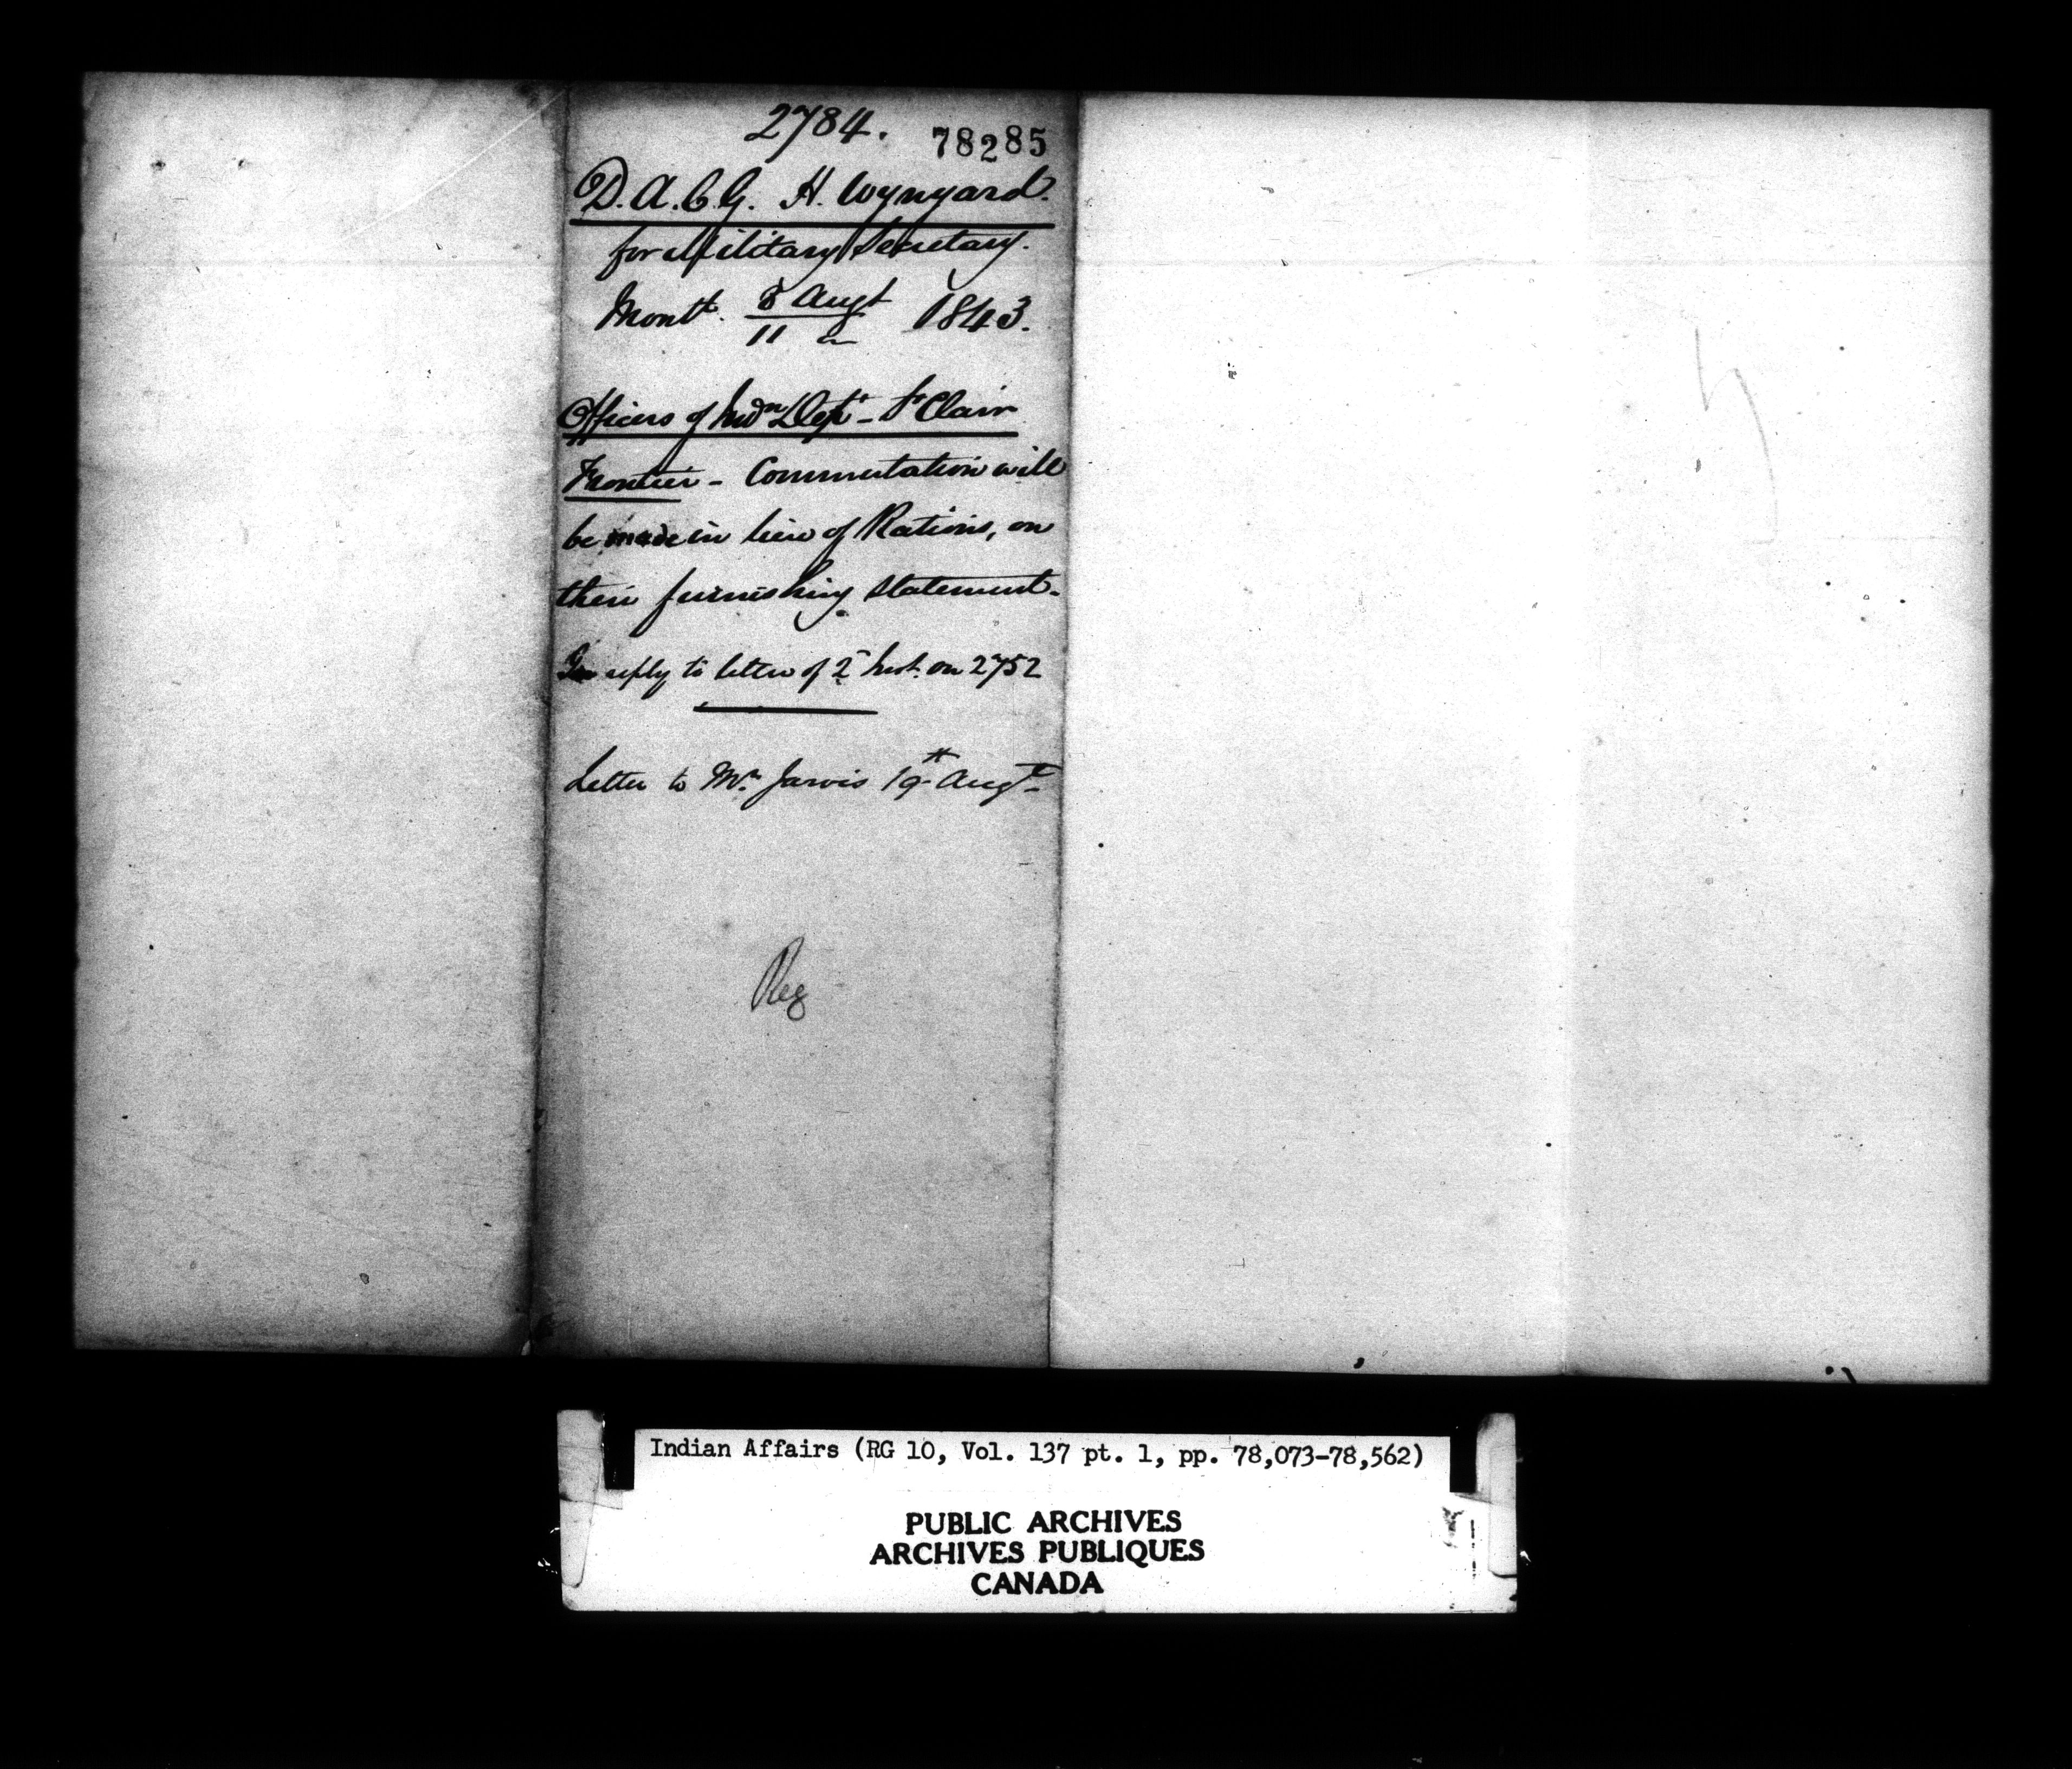 2784.
78285
D.A.C.G. H. Wynyard.
for Military Secretary.
Montl. 8 Augt 1843.
11
Officers of Indn Dept - St Clair
Frontier - Commutation will
be made in lieu of Rations, on
their furnishing statement.
In reply to letter of 2 Inst. on 2752
Letter to Mr. Jarvis 19th Augt
Reg
Indian Affairs (RG 10, Vol. 137 pt. 1, pp. 78,073-78,562)
PUBLIC ARCHIVES
ARCHIVES PUBLIQUES
CANADA